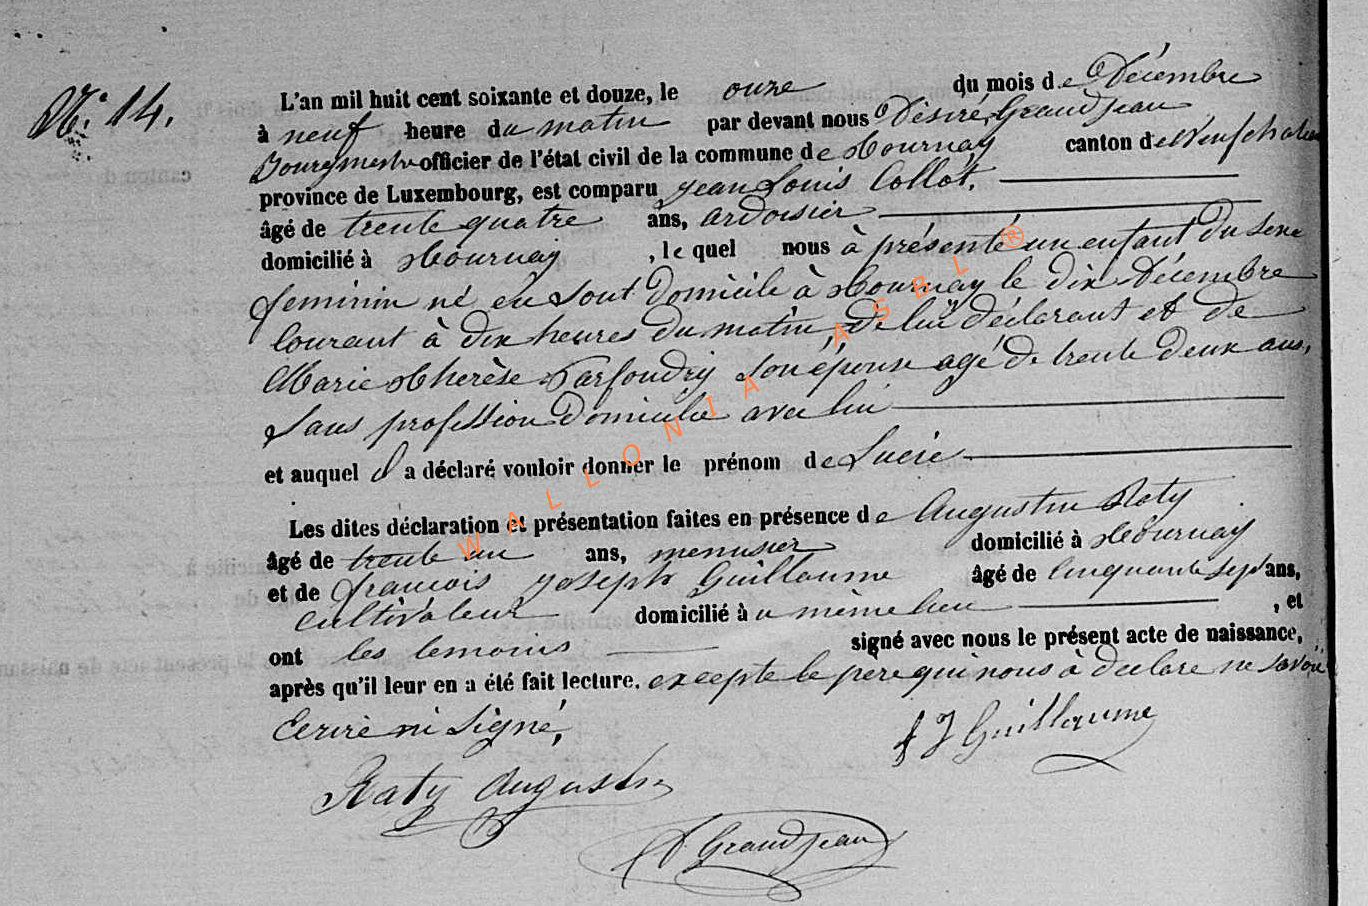 N° 14.
L'an mil huit cent soixante et douze, le onze du mois de Décembre
à neuf heure du matin par devant nous Désiré Grandjean
Bourgmestre officier de l'état civil de la commune de Tournay canton de Neufchateau
province de Luxembourg, est comparu Jean Louis Collot.
âgé de trente quatre ans, ardoisier
domicilié à Tournay, le quel nous à présenté un enfant du sexe
feminin né en sont domicile à Tournay le dix Décembre
courant à dix heures du matin, de lui déclarant et de
Marie Thérèse Parfondry son épouse agé de trente deux ans,
sans profession domicilié avec lui
et auquel il a déclaré vouloir donner le prénom de Lucie
Les dites déclaration et présentation faites en présence de Augustin Raty
âgé de trente un ans, menusier domicilié à Tournay
et de francois joseph Guillaume âgé de cinquante sept ans,
cultivateur domicilié au même lieu, et
ont les temoins signé avec nous le présent acte de naissance,
après qu'il leur en a été fait lecture. excepte le père qui nous à declare ne savoir
Ecrire ni Signé,
f J Guillaume
Raty Augustin
D Grandjean
WALLONIA ASBL ®